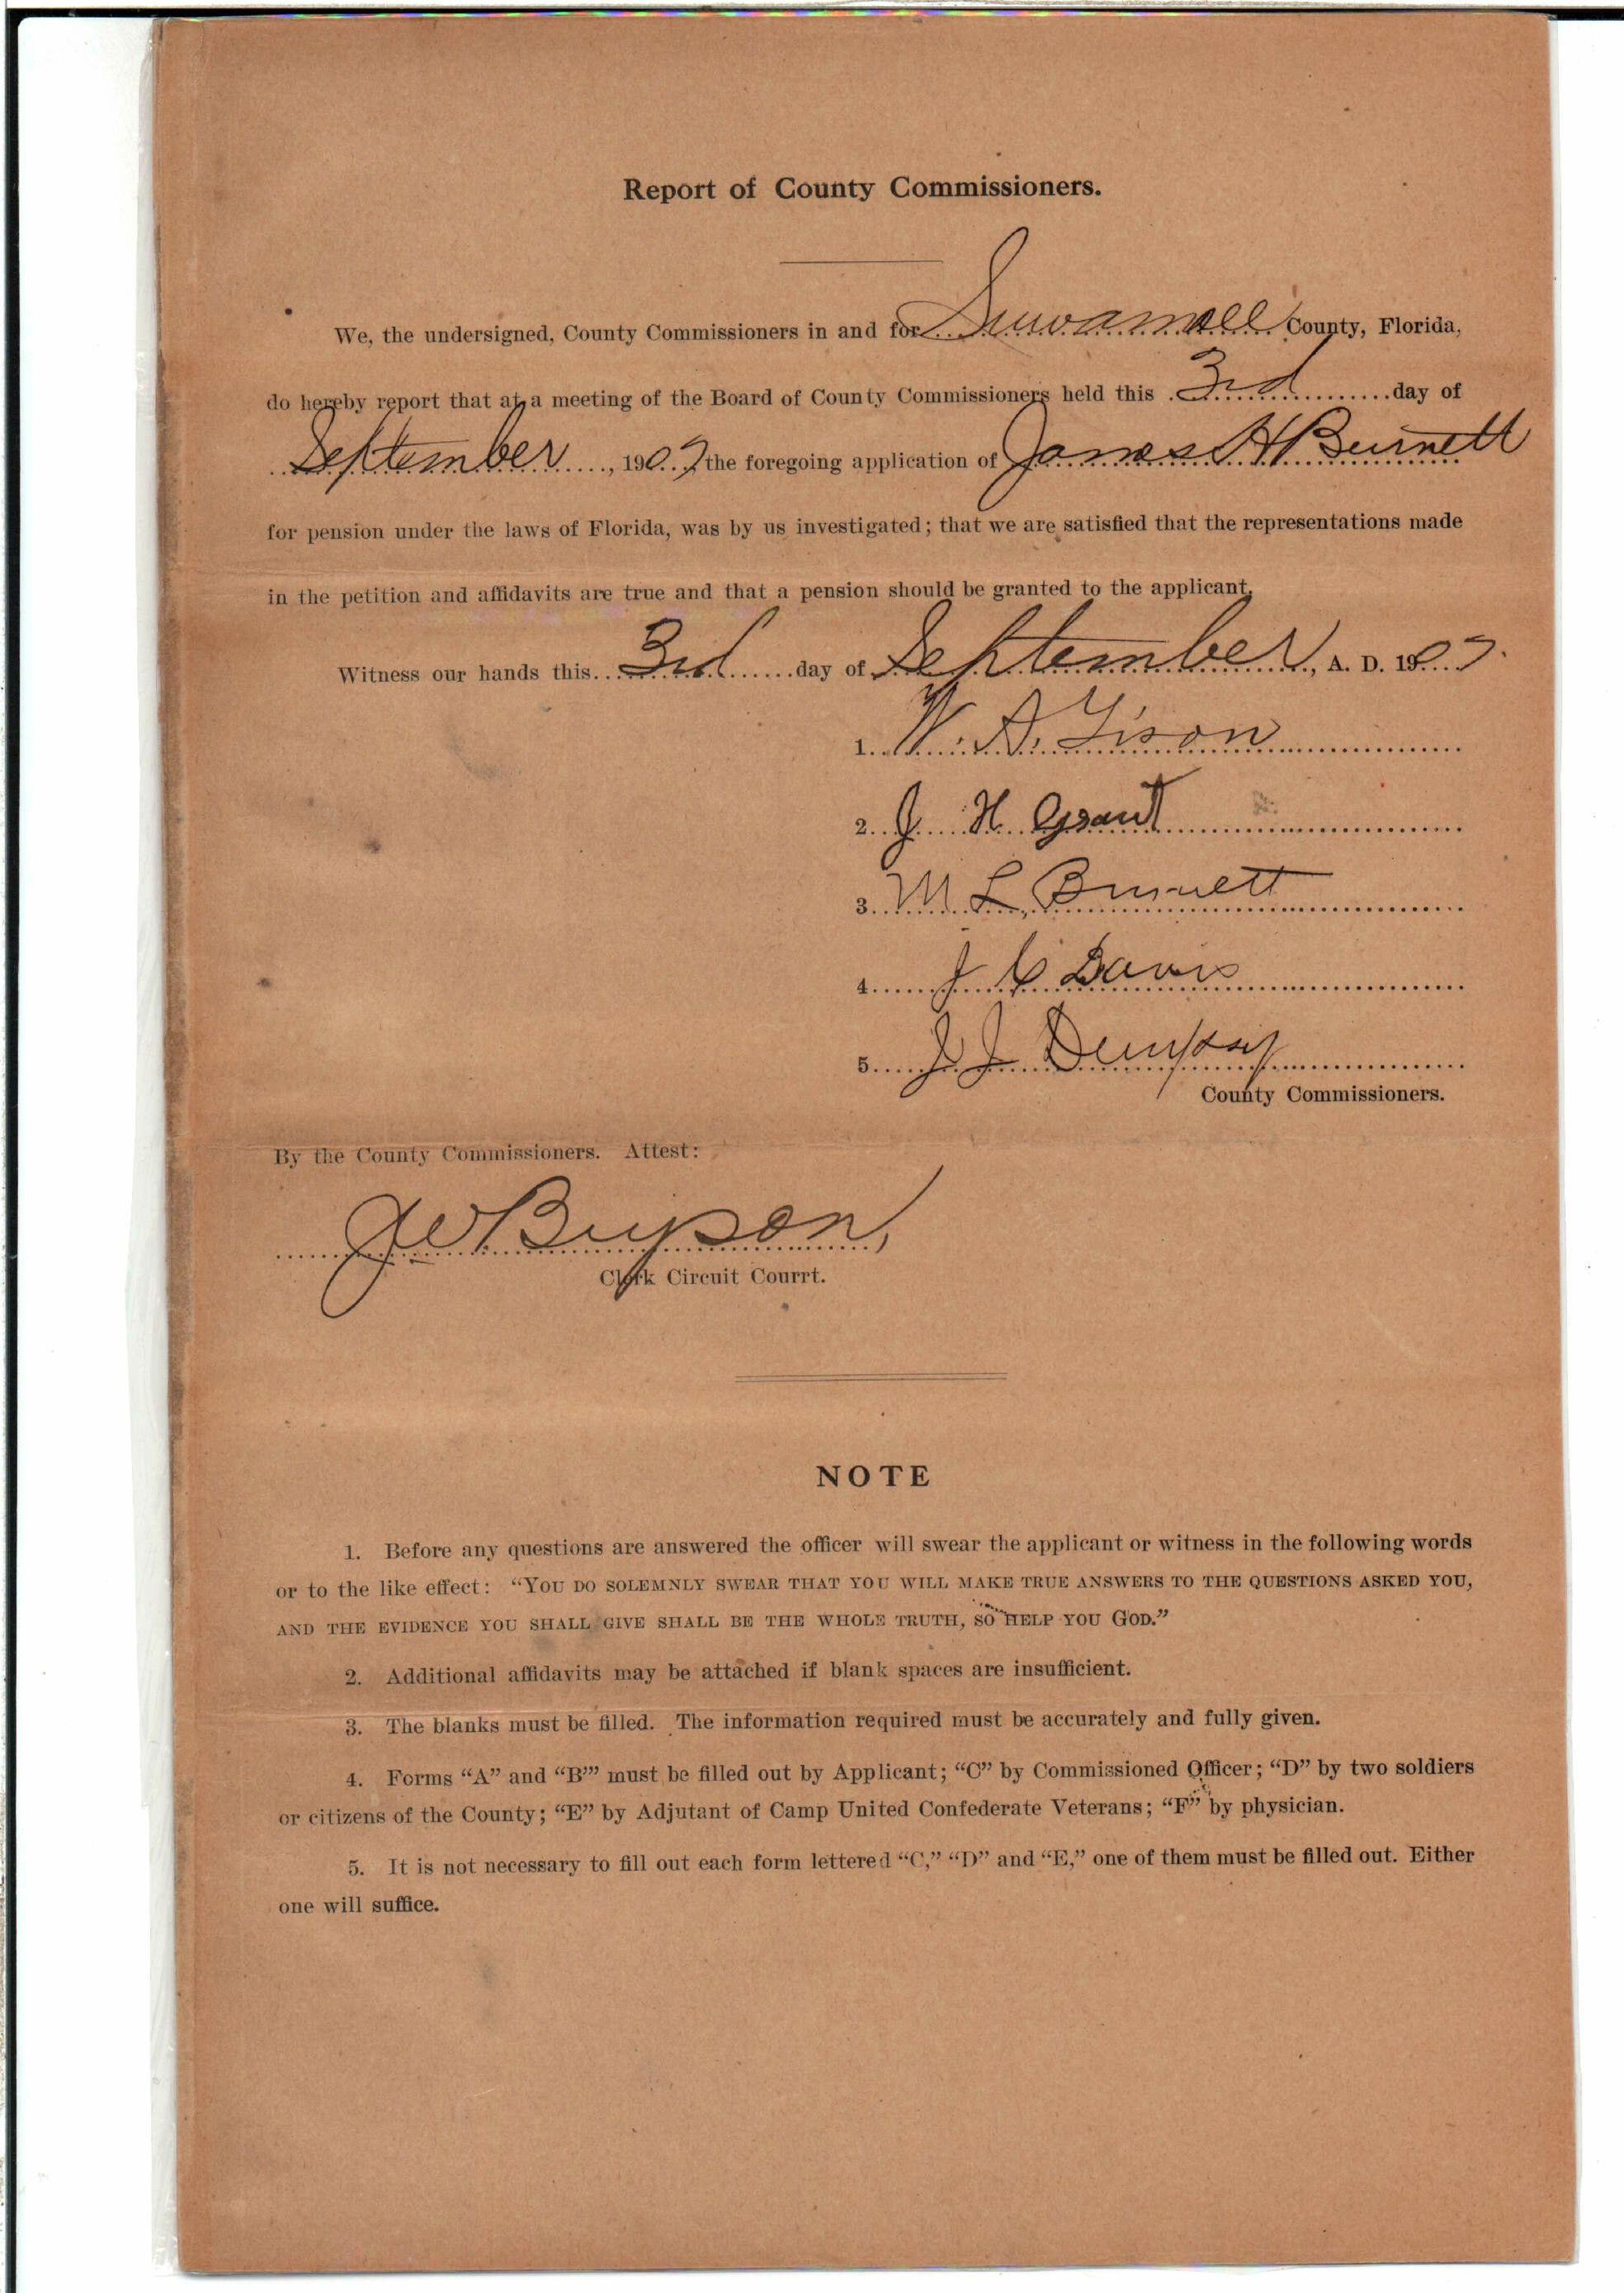 Report of County Commissioners.
We, the undersigned, County Commissioners in and for Suwannee County, Florida,
do hereby report that at a meeting of the Board of County Commissioners held this 3rd day of
September, 1907, the foregoing application of James H Burnett
for pension under the laws of Florida, was by us investigated; that we are satisfied that the representations made
in the petition and affidavits are true and that a pension should be granted to the applicant.
Witness our hands this 3rd day of September, A. D. 1907.
1. W. A. Tison
2. J H Grant
3. M L Burnett
4. J C Davis
5. J J Dempsey
County Commissioners.
By the County Commissioners. Attest:
J W Bryson,
Clerk Circuit Courrt.
NOTE
1. Before any questions are answered the officer will swear the applicant or witness in the following words
or to the like effect: “YOU DO SOLEMNLY SWEAR THAT YOU WILL MAKE TRUE ANSWERS TO THE QUESTIONS ASKED YOU,
AND THE EVIDENCE YOU SHALL GIVE SHALL BE THE WHOLE TRUTH, SO HELP YOU GOD.”
2. Additional affidavits may be attached if blank spaces are insufficient.
3. The blanks must be filled. The information required must be accurately and fully given.
4. Forms “A” and “B’” must be filled out by Applicant; “C” by Commissioned Officer; “D” by two soldiers
or citizens of the County; “E” by Adjutant of Camp United Confederate Veterans; “F” by physician.
5. It is not necessary to fill out each form lettered “C,” “D” and “E,” one of them must be filled out. Either
one will suffice.